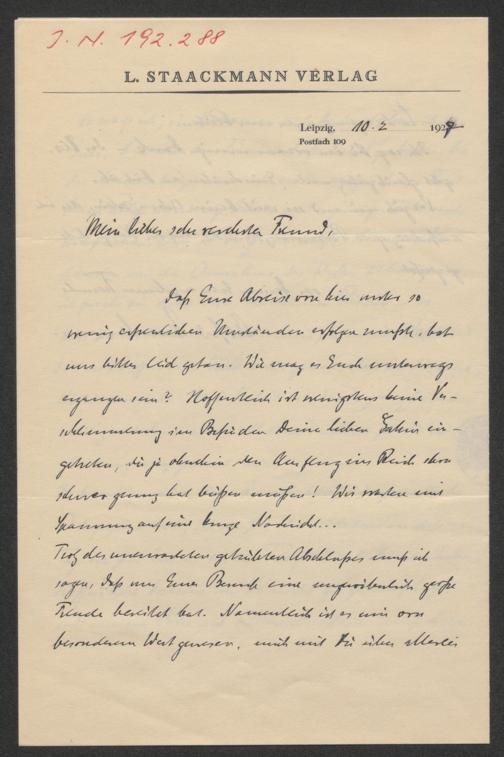 J. N. 192.288
L. STAACKMANN VERLAG
Leipzig, 10. 2 1927
Postfach 109
Mein lieber sehr verehrter Freund,
daß Eure Abreise von hier unter so
wenig erfreulichen Umständen erfolgen mußte, hat
uns bitter leid getan. Wie mag es Euch unterwegs
ergangen sein? Hoffentlich ist wenigstens keine Ver-
schlimmerung im Befinden Deiner lieben ein-
getreten, die ja ohnehin den Ausflug ins Reich schon
schwer genug hat büßen müssen! Wir warten mit
Spannung auf eine kurze Nachricht...
Trotz des unerwarteten getrübten Abschlußes muß ich
sagen, daß uns Euer Besuch eine ungewöhnlich große
Freude bereitet hat. Namentlich ist es mir von
besonderem Wert gewesen, mich mit Dir über allerlei